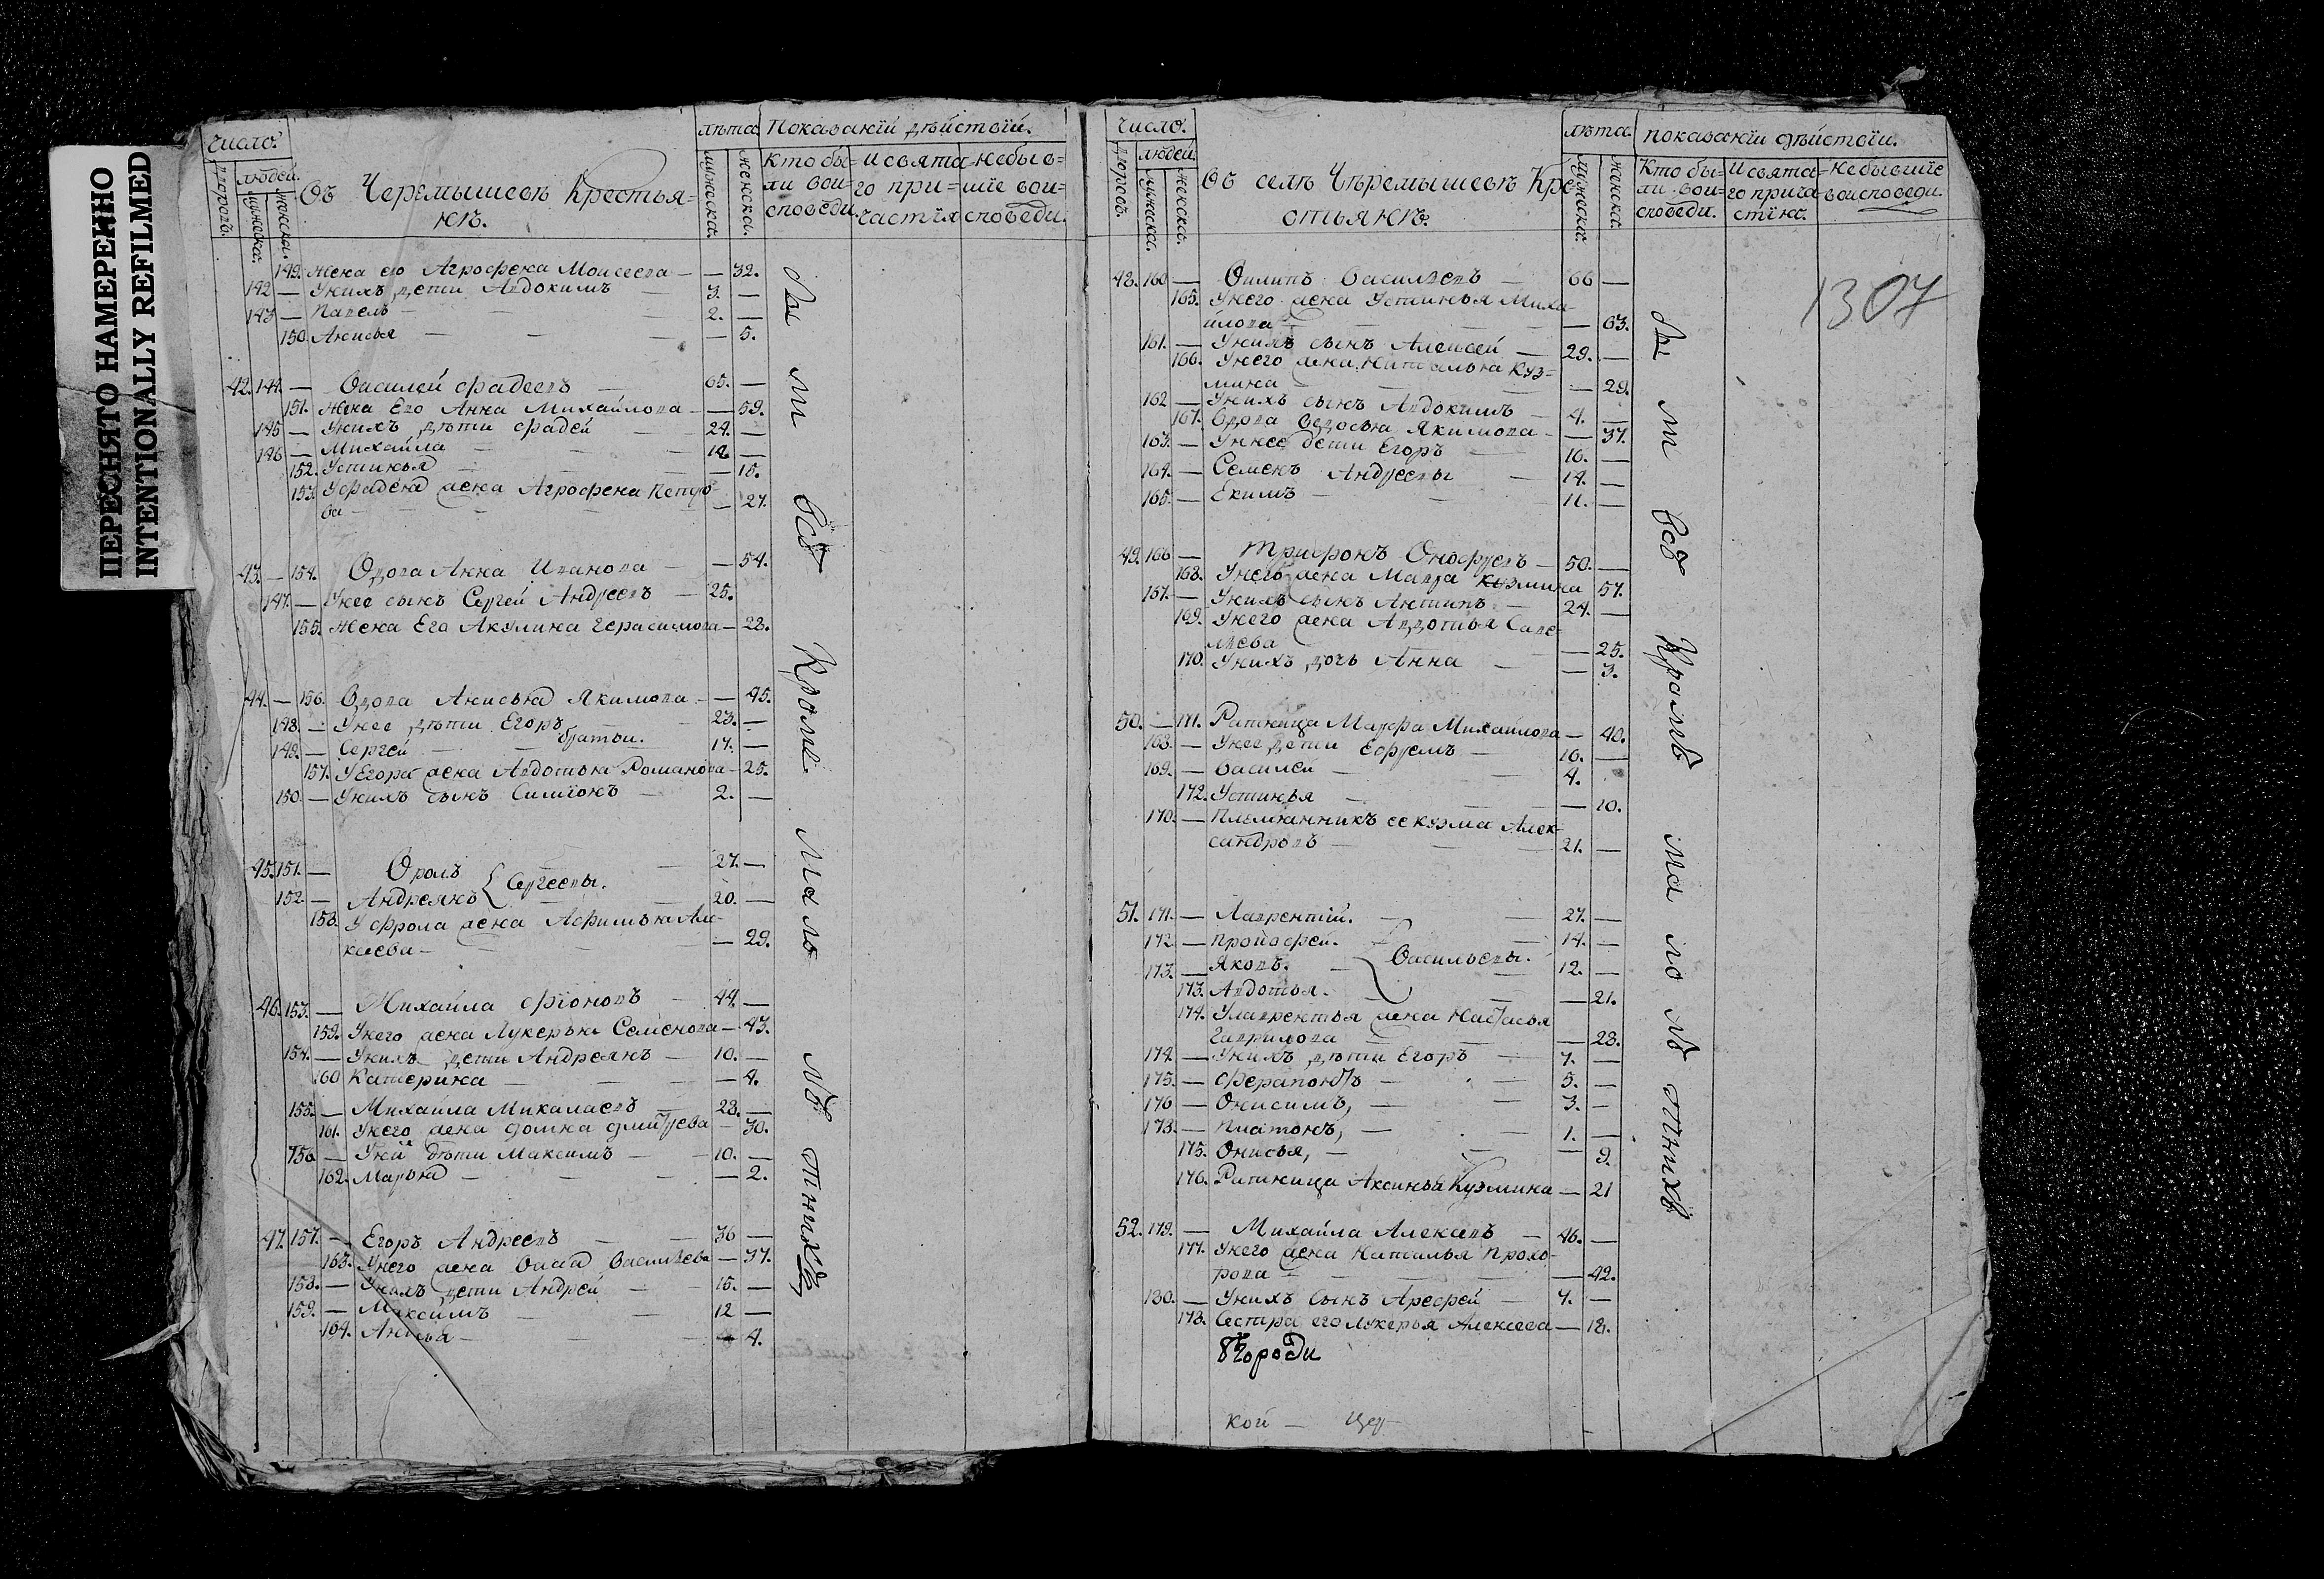 ПЕРЕСНЯТО НАМЕРЕННО
INTENTIONALLY REFILMED
число.
дворовъ.
людей.
мужеска.
женска.
Въ Черемышевѣ Крестья=
нѣ.
лѣта.
мужеска.
женска.
Показанїй дѣйствїй.
кто бы=
ли вои=
споведи.
и свята=
го при=
частїя
небыв=
шїе вои=
споведи.
149. Жена его Агрофена Моисеева — — 32.
142 — Унихъ дети Авдокимъ — 3. —
143 — Павелъ — — 2. —
150. Анисья — — — 5.
42. 144. — Василей Фадеевъ — 65. —
151. Жена Его Анна Михайлова — — 59.
145 — Унихъ дѣти Фадей — 24. —
146 — Михайла — — 14. —
152. Устинья — — 15.
153. Уфадея жена Агрофена Петро=
ва — — — — 27.
43. — 154. Вдова Анна Иванова — — 54.
147. — Унее сынъ Сергей Андреевъ — 25.
155. Жена Его Акулина Герасимова — 28.
44. — 156. Вдова Анисья Якимова — — 45.
148. — Унее дѣти Егоръ — 23. —
братьи.
149. — Сергей — — 17. —
157. УЕгора жена Авдотья Романова — 25.
150. — Унихъ сынъ Симїонъ — 2. —
45. 151. — Фролъ — 27. —
Сергеевы.
152. — Андреянъ — 20. —
158. Уфрола жена Афимья Ал=
кѣева — — — 29.
46. 153. — Михайла Фїоновъ — 44. —
159. Унего жена Лукерья Семенова — 43.
154. — Унихъ дети Андреянъ — 10. —
160 Катерина — — — — 4.
155. — Михайла Микалаевъ — 28. —
161. Унего жена Домна Дмитрева — 30.
156 — Уней дѣти Максимъ — 10. —
162. Марья — — — — 2.
47. 157. — Егоръ Андреевъ — 36 —
163. Унего жена Васса Василѣева — 37.
158. — Унихъ дети Андрей — 15. —
159. — Максимъ — — 12 —
164. Анисья — — — 4.
Вы ли всѣ Кроме малолѣтнихъ
число.
дворовъ.
людей.
мужеска.
женска.
Въ селѣ Чѣремышевѣ Кре=
стьянѣ.
лѣта.
мужеска.
женска.
показанїи дѣйствїи.
Кто бы=
ли вои=
споведи.
И свята=
го прича
стїя.
небывшїе
воисповеди.
1307
48. 160 — Филипъ Василѣевъ — 66 —
165. Унего жена Устинья Миха=
йлова — — — 63.
161. — Унихъ сынъ Алексей — 29. —
166. Унего жена Наталья Куз=
мина — — 29.
162 — Унихъ сынъ Авдокимъ — 4. —
167. Вдова Ведосья Якимова — — 37.
163. — Уннее дети Егоръ — 16. —
164. — Семенъ Андреевы — 14. —
165. — Екимъ — — 11. —
49. 166 — Трифонъ Онофреевъ — 50. —
168. Унего жена Мавра Кузмина 57.
167. — Унихъ сынъ Антипъ — 24. —
169. Унего жена Авдотья Саве=
лѣева — — 25.
170. Унихъ дочь Анна — — 3.
50. — 171. Ратница Марфа Михайлова — 40.
168. — Унее дети Ефремъ — 16. —
169. — Василей — — 4.
172. Устинья — — — 10.
170. — Племянникъ ее Кузма Алек=
сандровъ — — 21. —
51. 171. — Лаврентїй. — — 27. —
172. — Пройофей. — — 14. —
Васильевы.
173. — Яковъ. — — 12. —
173. Авдотья. — — — 21.
174. Улаврентья жена Настасья
Гаврилова — — — 28.
174. — Унихъ дѣти Егоръ — 7. —
175. — Ферапонтъ — — 5. —
176 — Онисимъ, — — 3. —
178. — Платонъ, — — 1. —
175. Онисья, — — — 9.
176. Ратница Аксинья Кузмина — 21
52. 179. — Михайла Алексевъ — 46. —
177. Унего жена Наталья Прохо=
рова — — — 42.
180. — Унихъ сынъ Арефей — 7. —
178. Сестра его Лукерья Алексеева — 18.
Вы ли всѣ Крамѣ малолѣтнихъ
кой — Цер